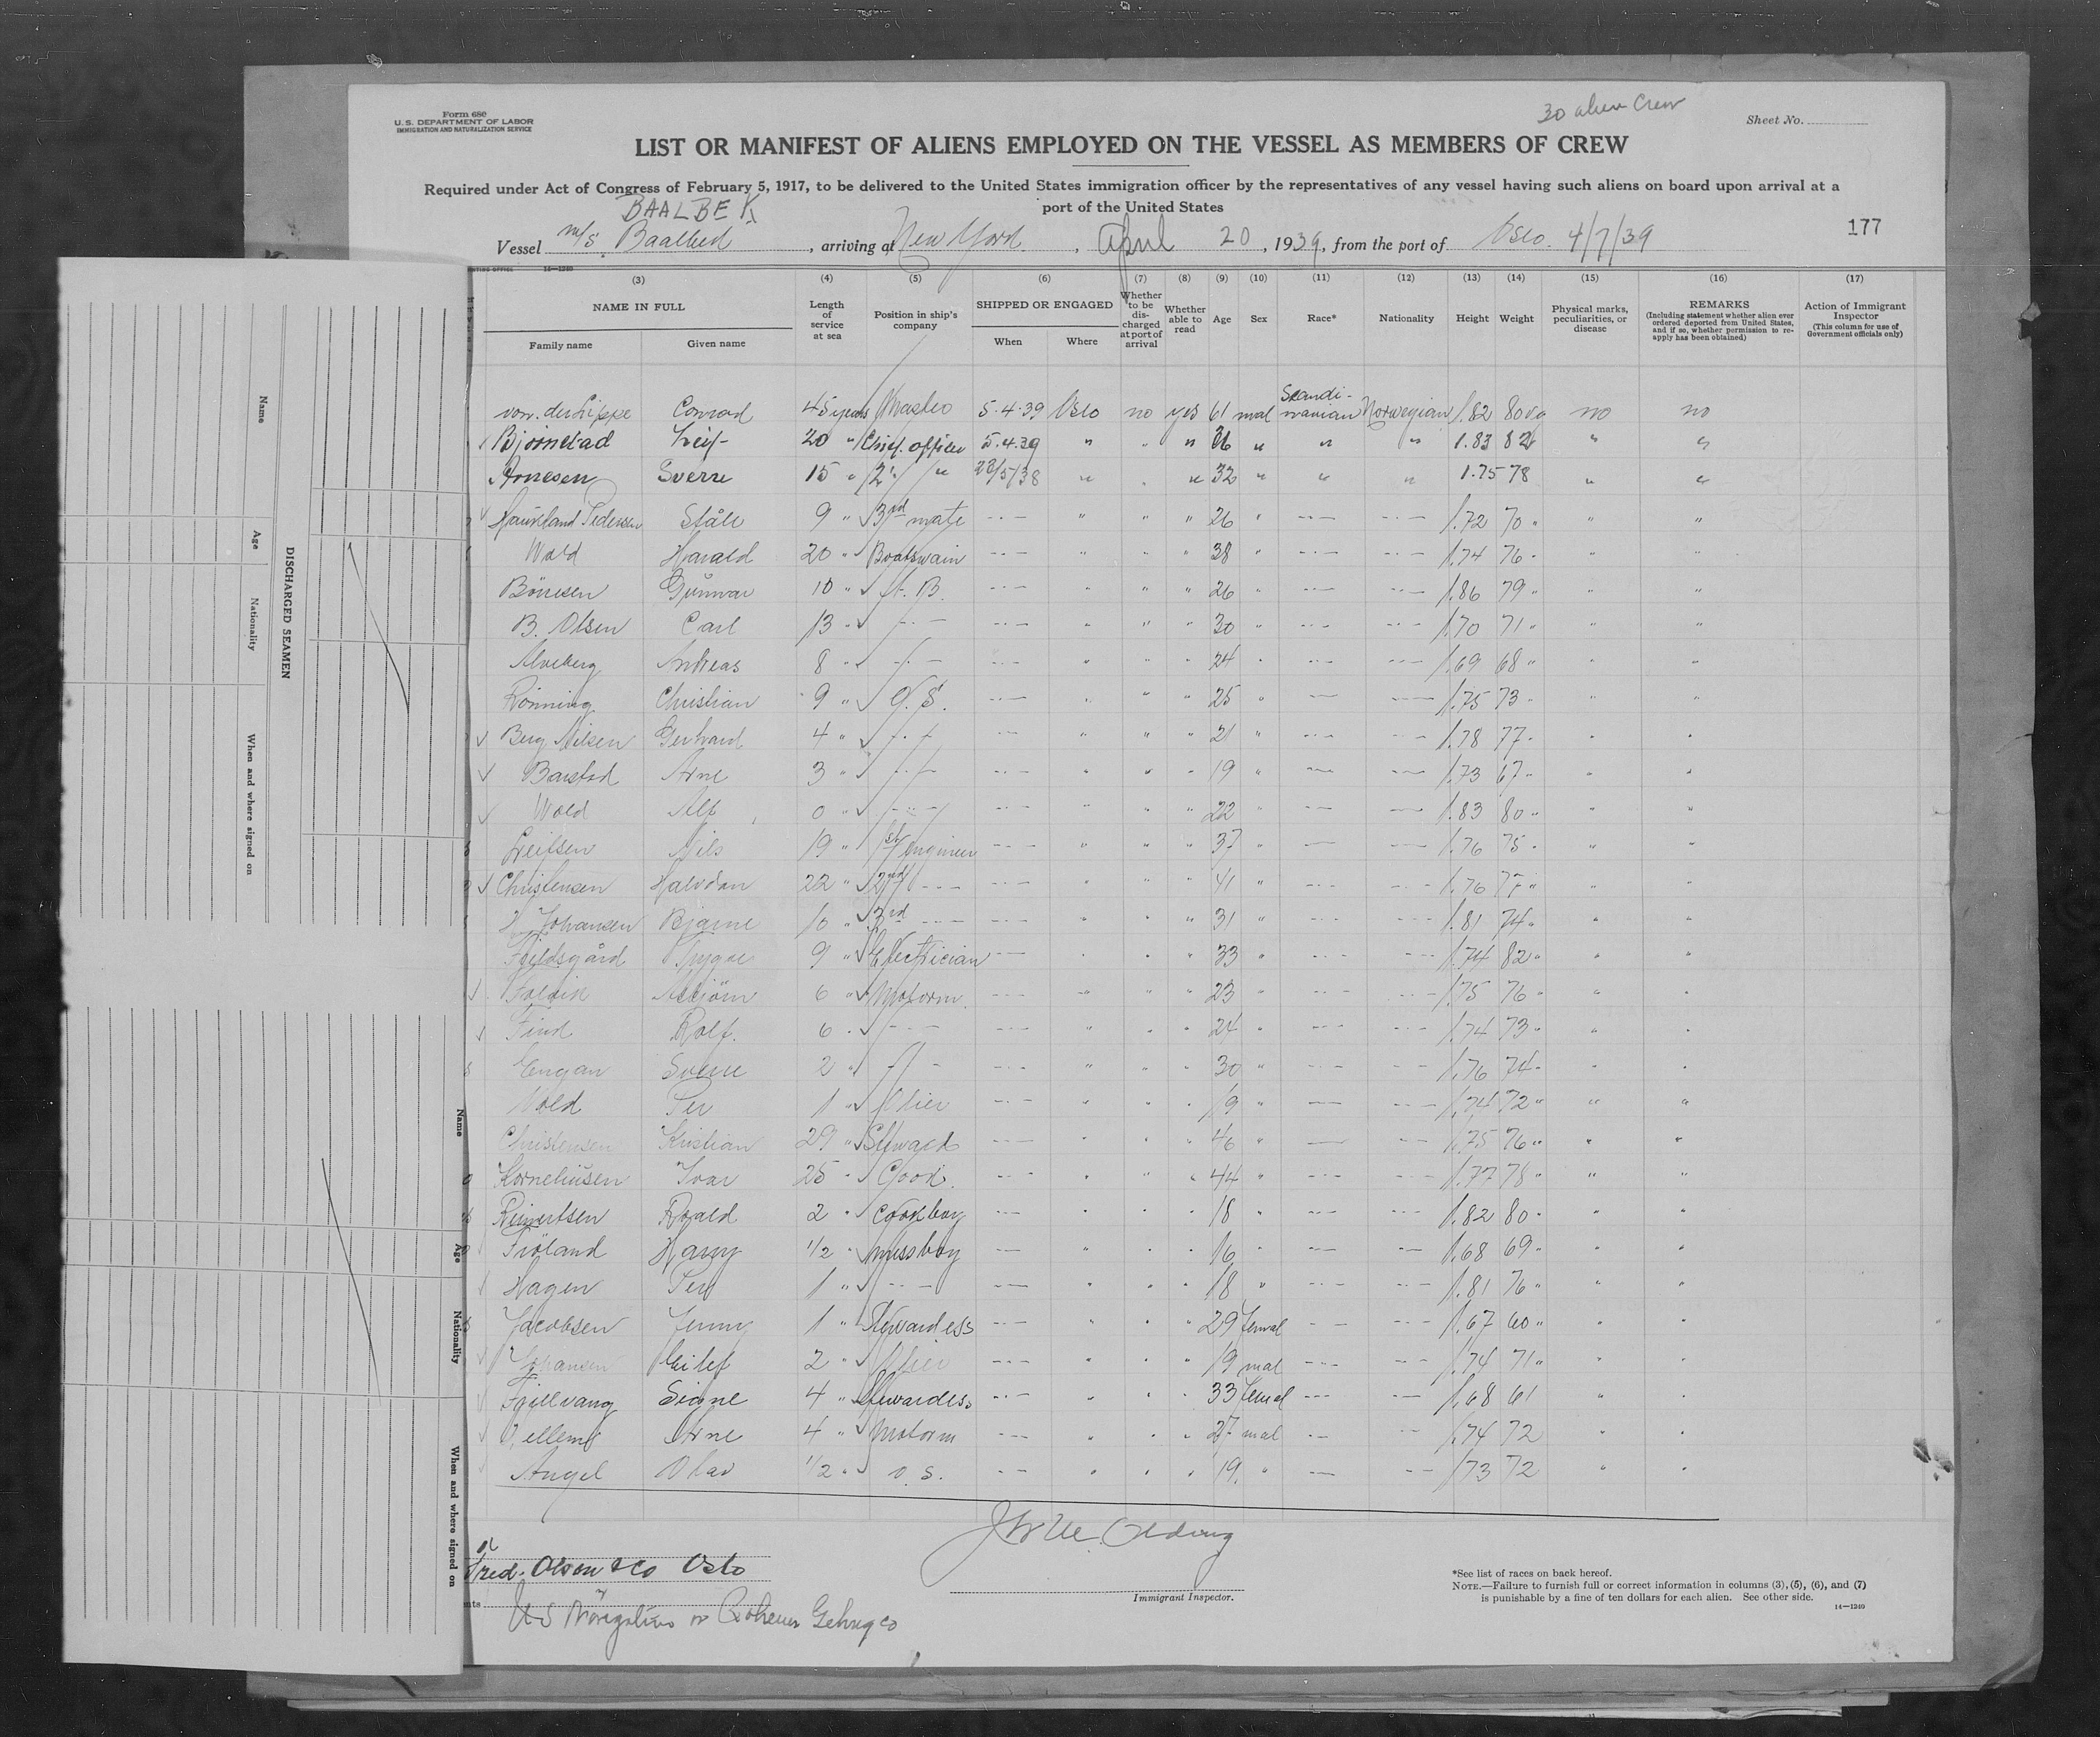 30 alien Crew
Form 680
U. S. DEPARTMENT OF LABOR
IMMIGRATION AND NATURALIZATION SERVICE
Sheet No.
LIST OR MANIFEST OF ALIENS EMPLOYED ON THE VESSEL AS MEMBERS OF CREW
Required under Act of Congress of February 5, 1917, to be delivered to the United States immigration officer by the representatives of any vessel having such aliens on board upon arrival at a
port of the United States
BAALBEK
177
Vessel m/s. Baalbek, arriving at New York, April 20, 1939, from the port of Oslo. 4/7/39
(3) (4) (5) (6) (7) (8) (9) (10) (11) (12) (13) (14) (15) (16) (17)
NAME IN FULL Family name Given name
Length of service at sea
Position in ship's company
SHIPPED OR ENGAGED When Where
Whether to be discharged at port of arrival
Whether able to read
Age Sex Race* Nationality Height Weight
Physical marks, peculiarities, or disease
REMARKS (Including statement whether alien ever ordered deported from United States, and if so, whether permission to reapply has been obtained)
Action of Immigrant Inspector (This column for use of Government officials only)
von der Lippe Conrad 45 years Master 5.4.39 Oslo no yes 61 mal Skandinavian Norwegian 1.82 80 no no
Bjørnstad Leif 20 " Chief officer 5.4.39 " " " 36 " " " 1.83 82 " "
Arnesen Sverre 15 " 2' " 23/5/38 " " " 32 " " " 1.75 78 " "
Haugland Pedersen Ståle 9 " 3rd mate " " " 26 " 1.72 70 " " "
Wold Harald 20 " Boatswain " " " 38 " 1.74 76 " " "
Gunnar 10 " A. B. " " " 26 " 1.86 79 " " "
B. Olsen Carl 13 " " " " 30 " 1.70 71 " " "
Alveberg Andreas 8 " " " " 24 " 1.69 68 " " "
Rönning Christian 9 " O. S. " " " 25 " 1.75 73 " " "
Berg Nilsen Gerhard 4 " " " " 21 " 1.78 77 " " "
Arne 3 " " " " 19 " 1.73 67 " " "
Wold Alf 0 " " " " 22 " 1.83 80 " " "
Leifsen Nils 19 " 1st engineer " " " 37 " 1.76 75 " " "
Christensen Halvdan 22 " 2nd " " " 41 " 1.76 " " "
H. Johansen Bjarne 10 " 3rd " " " 31 " 1.81 74 " " "
Fjeldsgård Trygve 9 " Electrician " " " 33 " 1.74 82 " " "
Asbjörn 6 " Motorm. " " " 23 " 1.75 76 " " "
Rolf. 6 " " " " 24 " 1.74 73 " " "
Engan Sverre 2 " " " " 30 " 1.76 74 " " "
Wold Per 1 " Oiler " " " 19 " 1.74 72 " " "
Christensen Kristian 29 " Steward " " " 46 " 1.75 76 " " "
Korneliusen Ivar 25 " Cook. " " " 44 " 1.77 78 " " "
Reinertsen Roald 2 " Cookboy " " " 18 " 1.82 80 " " "
Fröland Harry 1/2 " messboy " " " 16 " 1.68 69 " " "
Hagen Per 1 " " " " 18 " 1.81 76 " " "
Jacobsen Jenny 1 " Stewardess " " " 29 femal 1.67 60 " " "
Johansen 2 " Oiler " " " 19 mal 1.74 71 " " "
Fjellvang Signe 4 " Stewardess " " " 33 femal 1.68 61 " "
Arne 4 " Motorm " " " 27 mal 1.74 72 " "
Angel Olav 1/2 " O. S. " " " 19. " 1.73 72 " "
Fred. Olsen & Co Oslo
Immigrant Inspector.
*See list of races on back hereof.
NOTE.—Failure to furnish full or correct information in columns (3), (5), (6), and (7)
is punishable by a fine of ten dollars for each alien. See other side.
14—1240
DISCHARGED SEAMEN
Name
Age
Nationality
When and where signed on
Name
Age
Nationality
When and where signed on